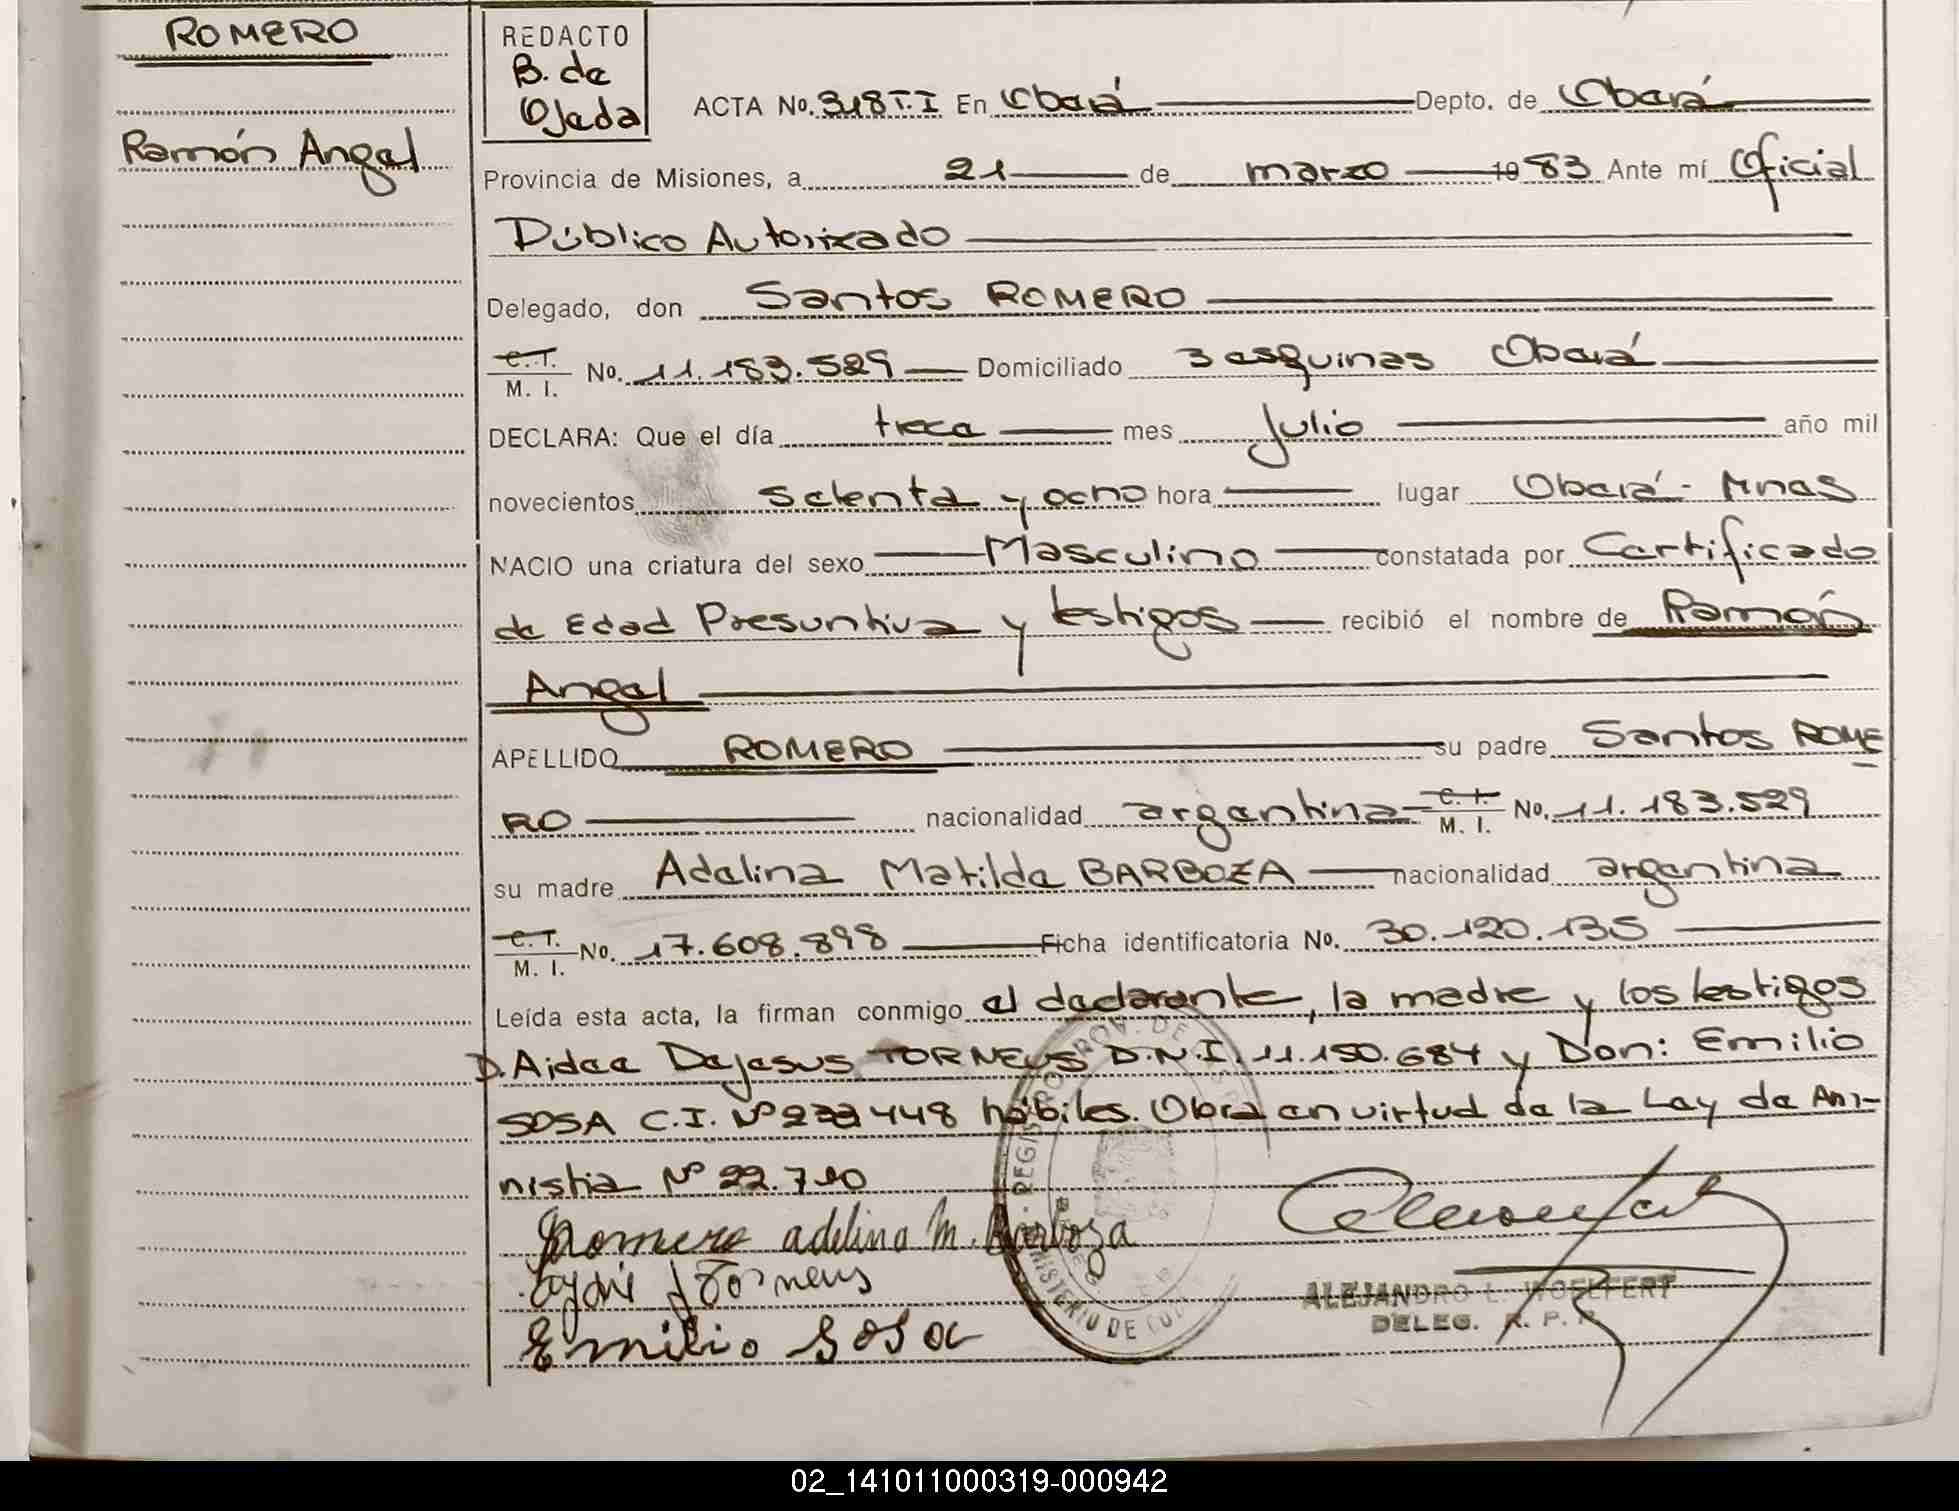 ROMERO
Ramón Angel
REDACTO
B. de
Ojeda
ACTA No. 318 T. I En Oberá Depto. de Oberá
Provincia de Misiones, a 21 de marzo 1983 Ante mí Oficial
Público Autorizado
Delegado, don Santos ROMERO
C.I. M. I. No. 11.183.529 Domiciliado 3 esquinas Oberá
DECLARA: Que el día trece mes Julio año mil
novecientos setenta y ocho hora lugar Oberá - Mnes
NACIO una criatura del sexo Masculino constatada por Certificado
de Edad Presuntiva y testigos recibió el nombre de Ramón
Angel
APELLIDO ROMERO su padre Santos ROME
RO nacionalidad argentina C.I. M. I. No. 11.183.529
su madre Adelina Matilde BARBOZA nacionalidad argentina
C.I. M. I. No. 17.608.898 Ficha identificatoria No. 30.120.135
Leída esta acta, la firman conmigo el declarante, la madre y los testigos
D. Aidee Dejesus TORNEUS D.N.I. 11.150.684 y Don: Emilio
SOSA C.I. Nº 448 hábiles. Obra en virtud de la Ley de Am-
nistia Nº 22.710
Romero adelina M. Barboza
Torneus
Emilio Sosa
ALEJANDRO L. WOELFERT
DELEG. R. P. P.
REGISTRO PROV. DE LAS PER
MINISTERIO DE
02_141011000319-000942